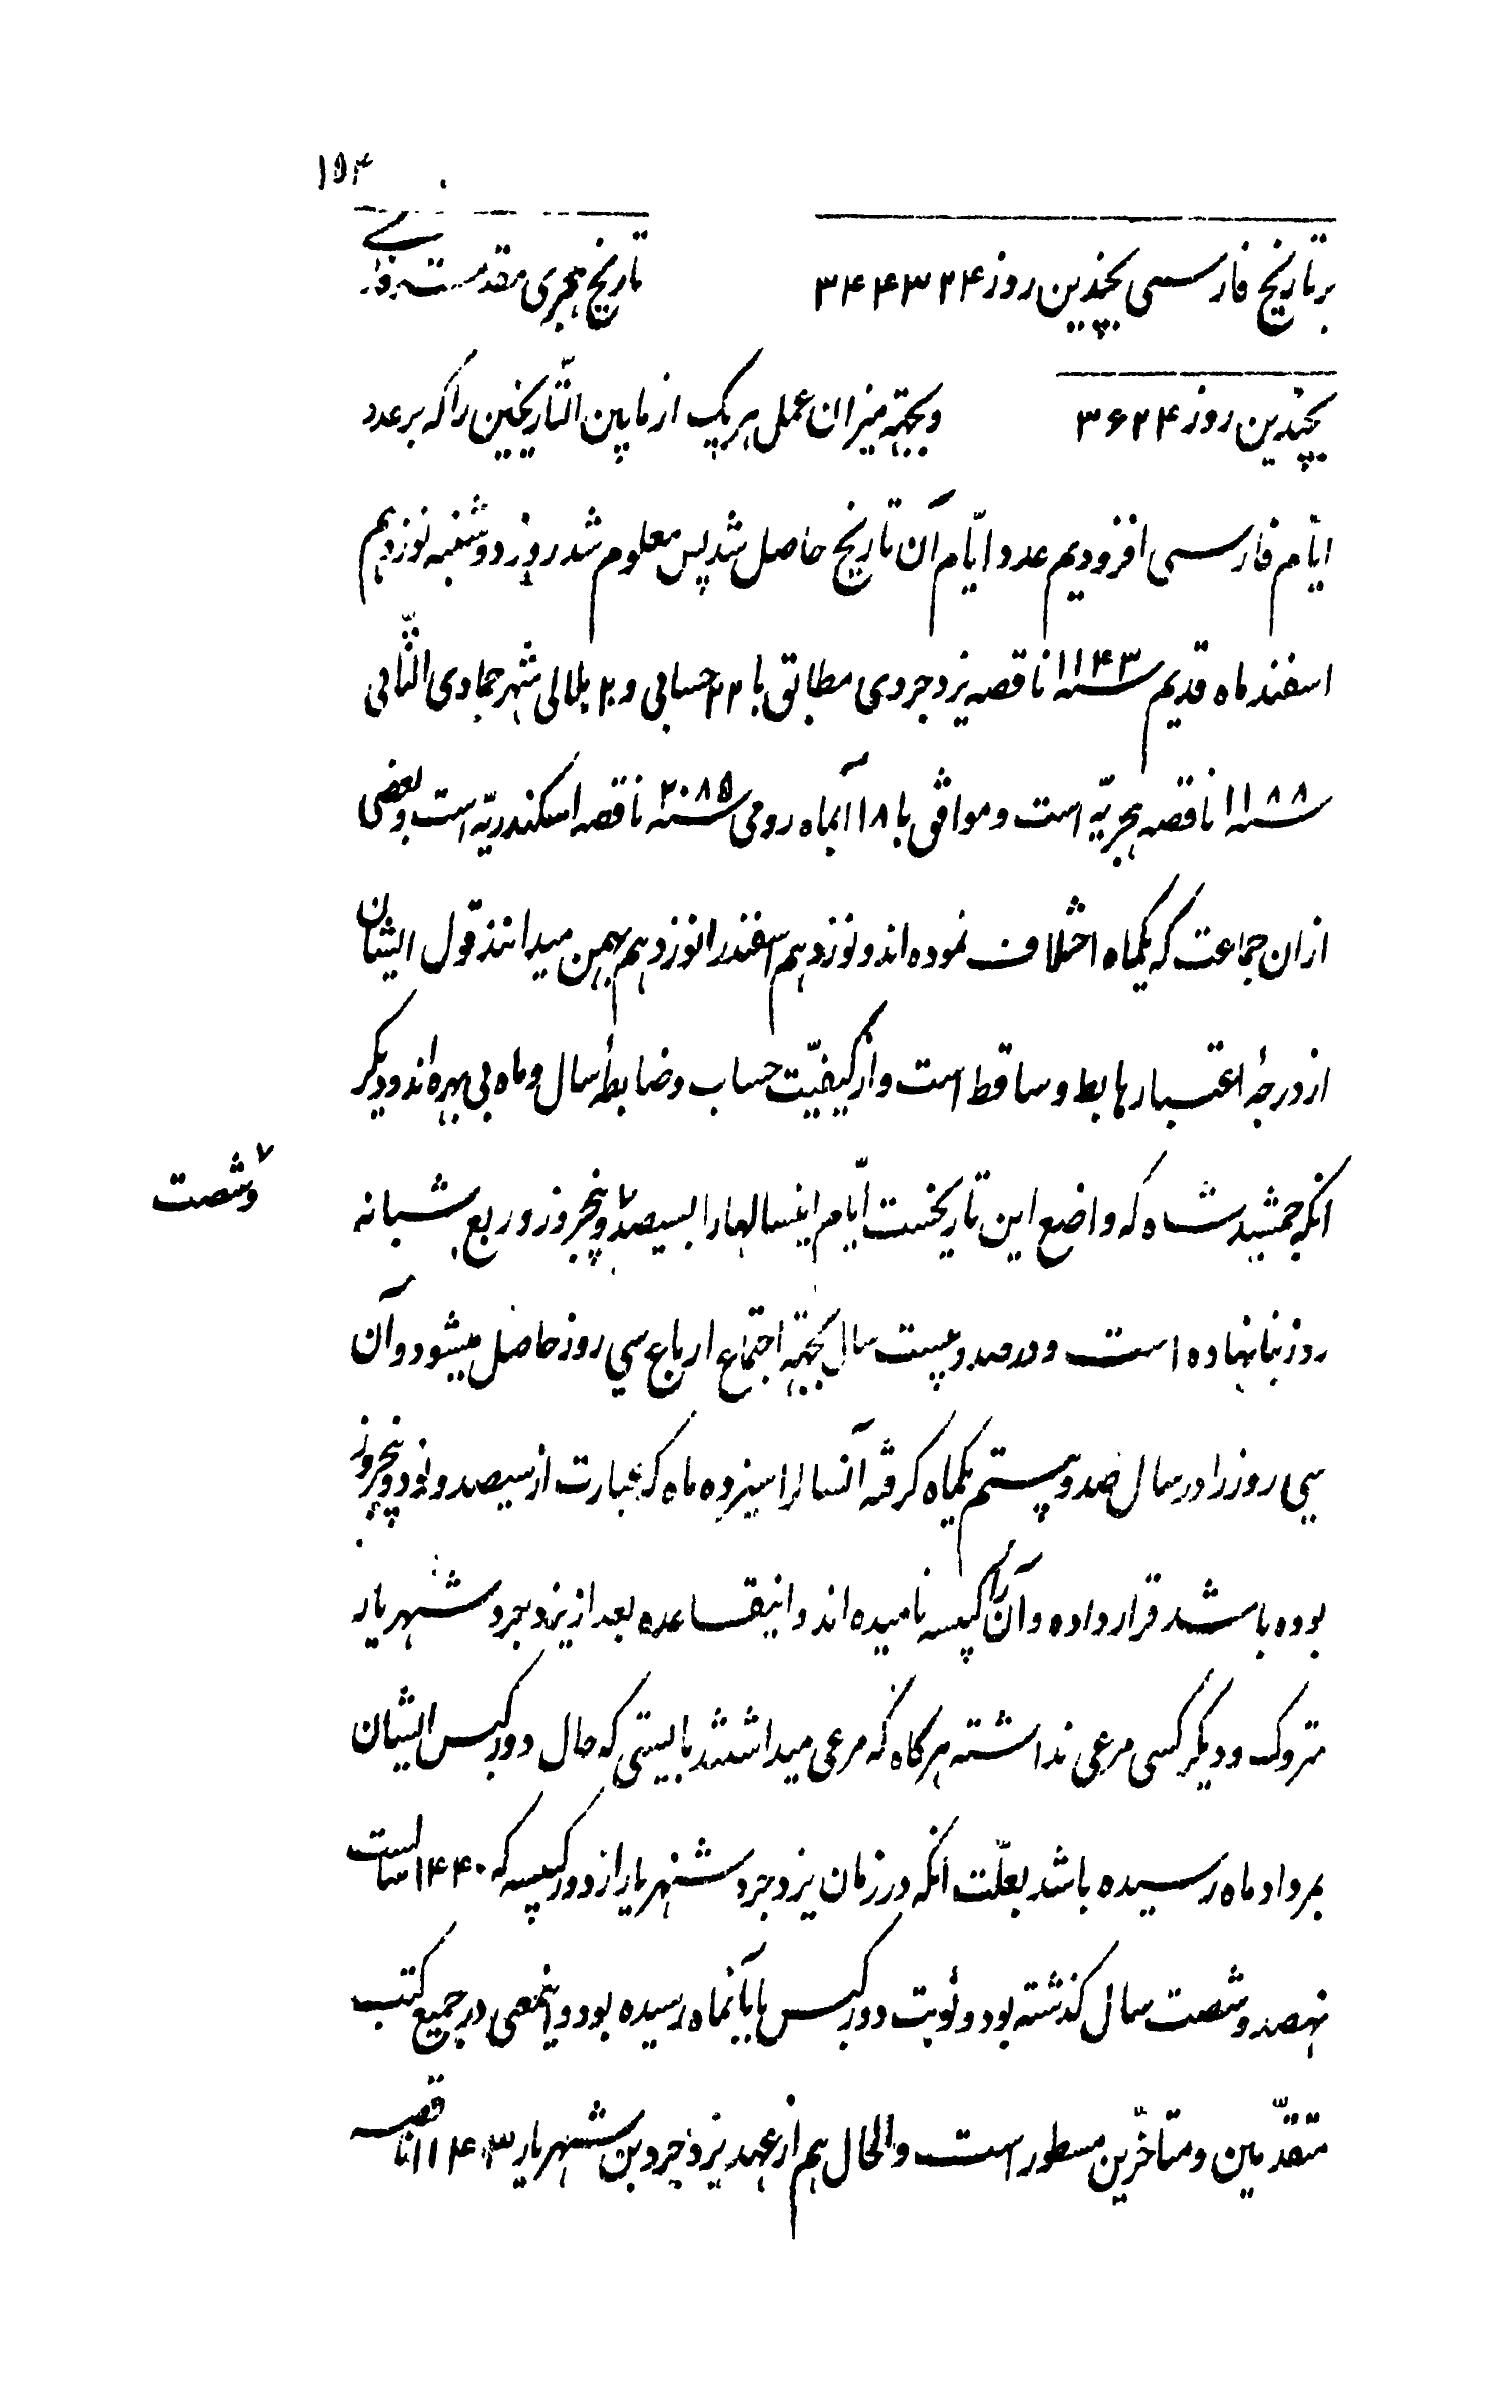 ۱۵۴
بر تاریخ فارسی بچندین روز ۳۴۴۳۲۴ تاریخ هجری مقدمست بر فارسی
بچندین روز ۳۶۲۴ و بجهته میزان عمل هر یک از مابین التّاریخین را که بر عدد
ایّام فارسی افزودیم عدد ایّام آن تاریخ حاصل شد پس معلوم شد روز دوشنبه نوزدهم
اسفندماه قدیم سنه ۱۱۴۳ ناقصه یزدجردی مطابق با ۲۲ حسابی و ۲۰ هلالی شهر جمادی الثّانی
سنه ۱۱۸۸ ناقصه هجریّه است و موافق با ۱۸ آبماه رومی سنه ۲۰۸۵ ناقصه اسکندریّه است و بعضی
ازان جماعت که یکماه اختلاف نموده اند و نوزدهم اسفند را نوزدهم بهمن میدانند قول ایشان
از درجهٔ اعتبار هابط و ساقط است و از کیفیّت حساب و ضابطهٔ سال و ماه بی بهره اند و دیگر
انکه جمشید شاه که واضع این تاریخست ایّام اینسالها را بسیصد و پنجروز و ربع شبانه
و شصت
روز بنا نهاده است و در صد و بیست سال بجهته اجتماع ارباع سی روز حاصل میشود و آن
سی روز را در سال صد و بیستم یکماه گرفته آنسال را سیزده ماه که عبارت از سیصد و نود و پنجروز
بوده باشد قرار داده و آن را کبیسه نامیده اند و اینقاعده بعد از یزدجرد شهریار
متروک و دیگر کسی مرعی نداشته هرگاه که مرعی میداشتند بایستی که حال دور کبس ایشان
بمرداد ماه رسیده باشد بعلّت انکه در زمان یزدجرد شهریار از دور کبیسه که ۱۴۴۰ سالست
نهصد و شصت سال گذشته بود و نوبت دور کبس بآبانماه رسیده بود و اینمعنی در جمیع کتب
متقدّمین و متاخّرین مسطور است و الحال هم از عهد یزدجرد بن شهریار ۱۱۴۳ ناقصه